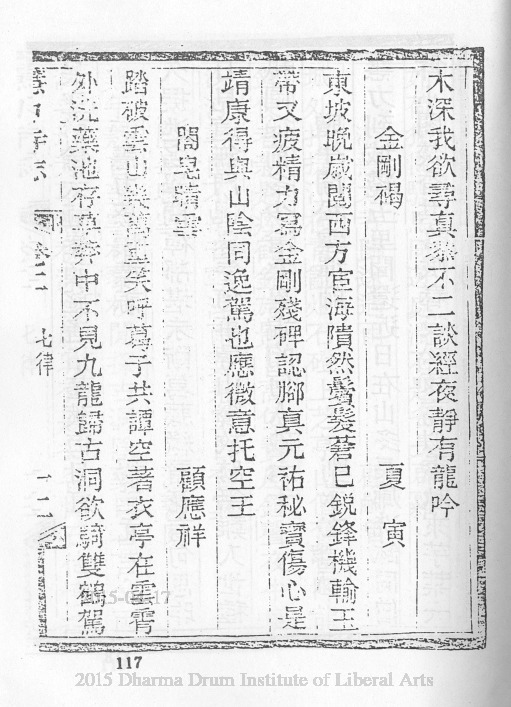 木深我欲尋真參不二談經夜靜有龍吟
金剛碣 夏寅
東坡晚歲閱西方宦海隤然鬢髮蒼已銳鋒機輸玉
帶又疲精力寫金剛殘碑認腳真元祐秘寶傷心是
靖康得與山陰同逸駕也應微意托空王
閤皂晴雲 顧應祥
踏破雲山幾萬重笑呼葛子共譚空著衣亭在雲霄
外洗藥池存莽中不見九龍歸古洞欲騎雙鶴駕
志 卷二 七律 十二
117
2015 Dharma Drum Institute of Liberal Arts